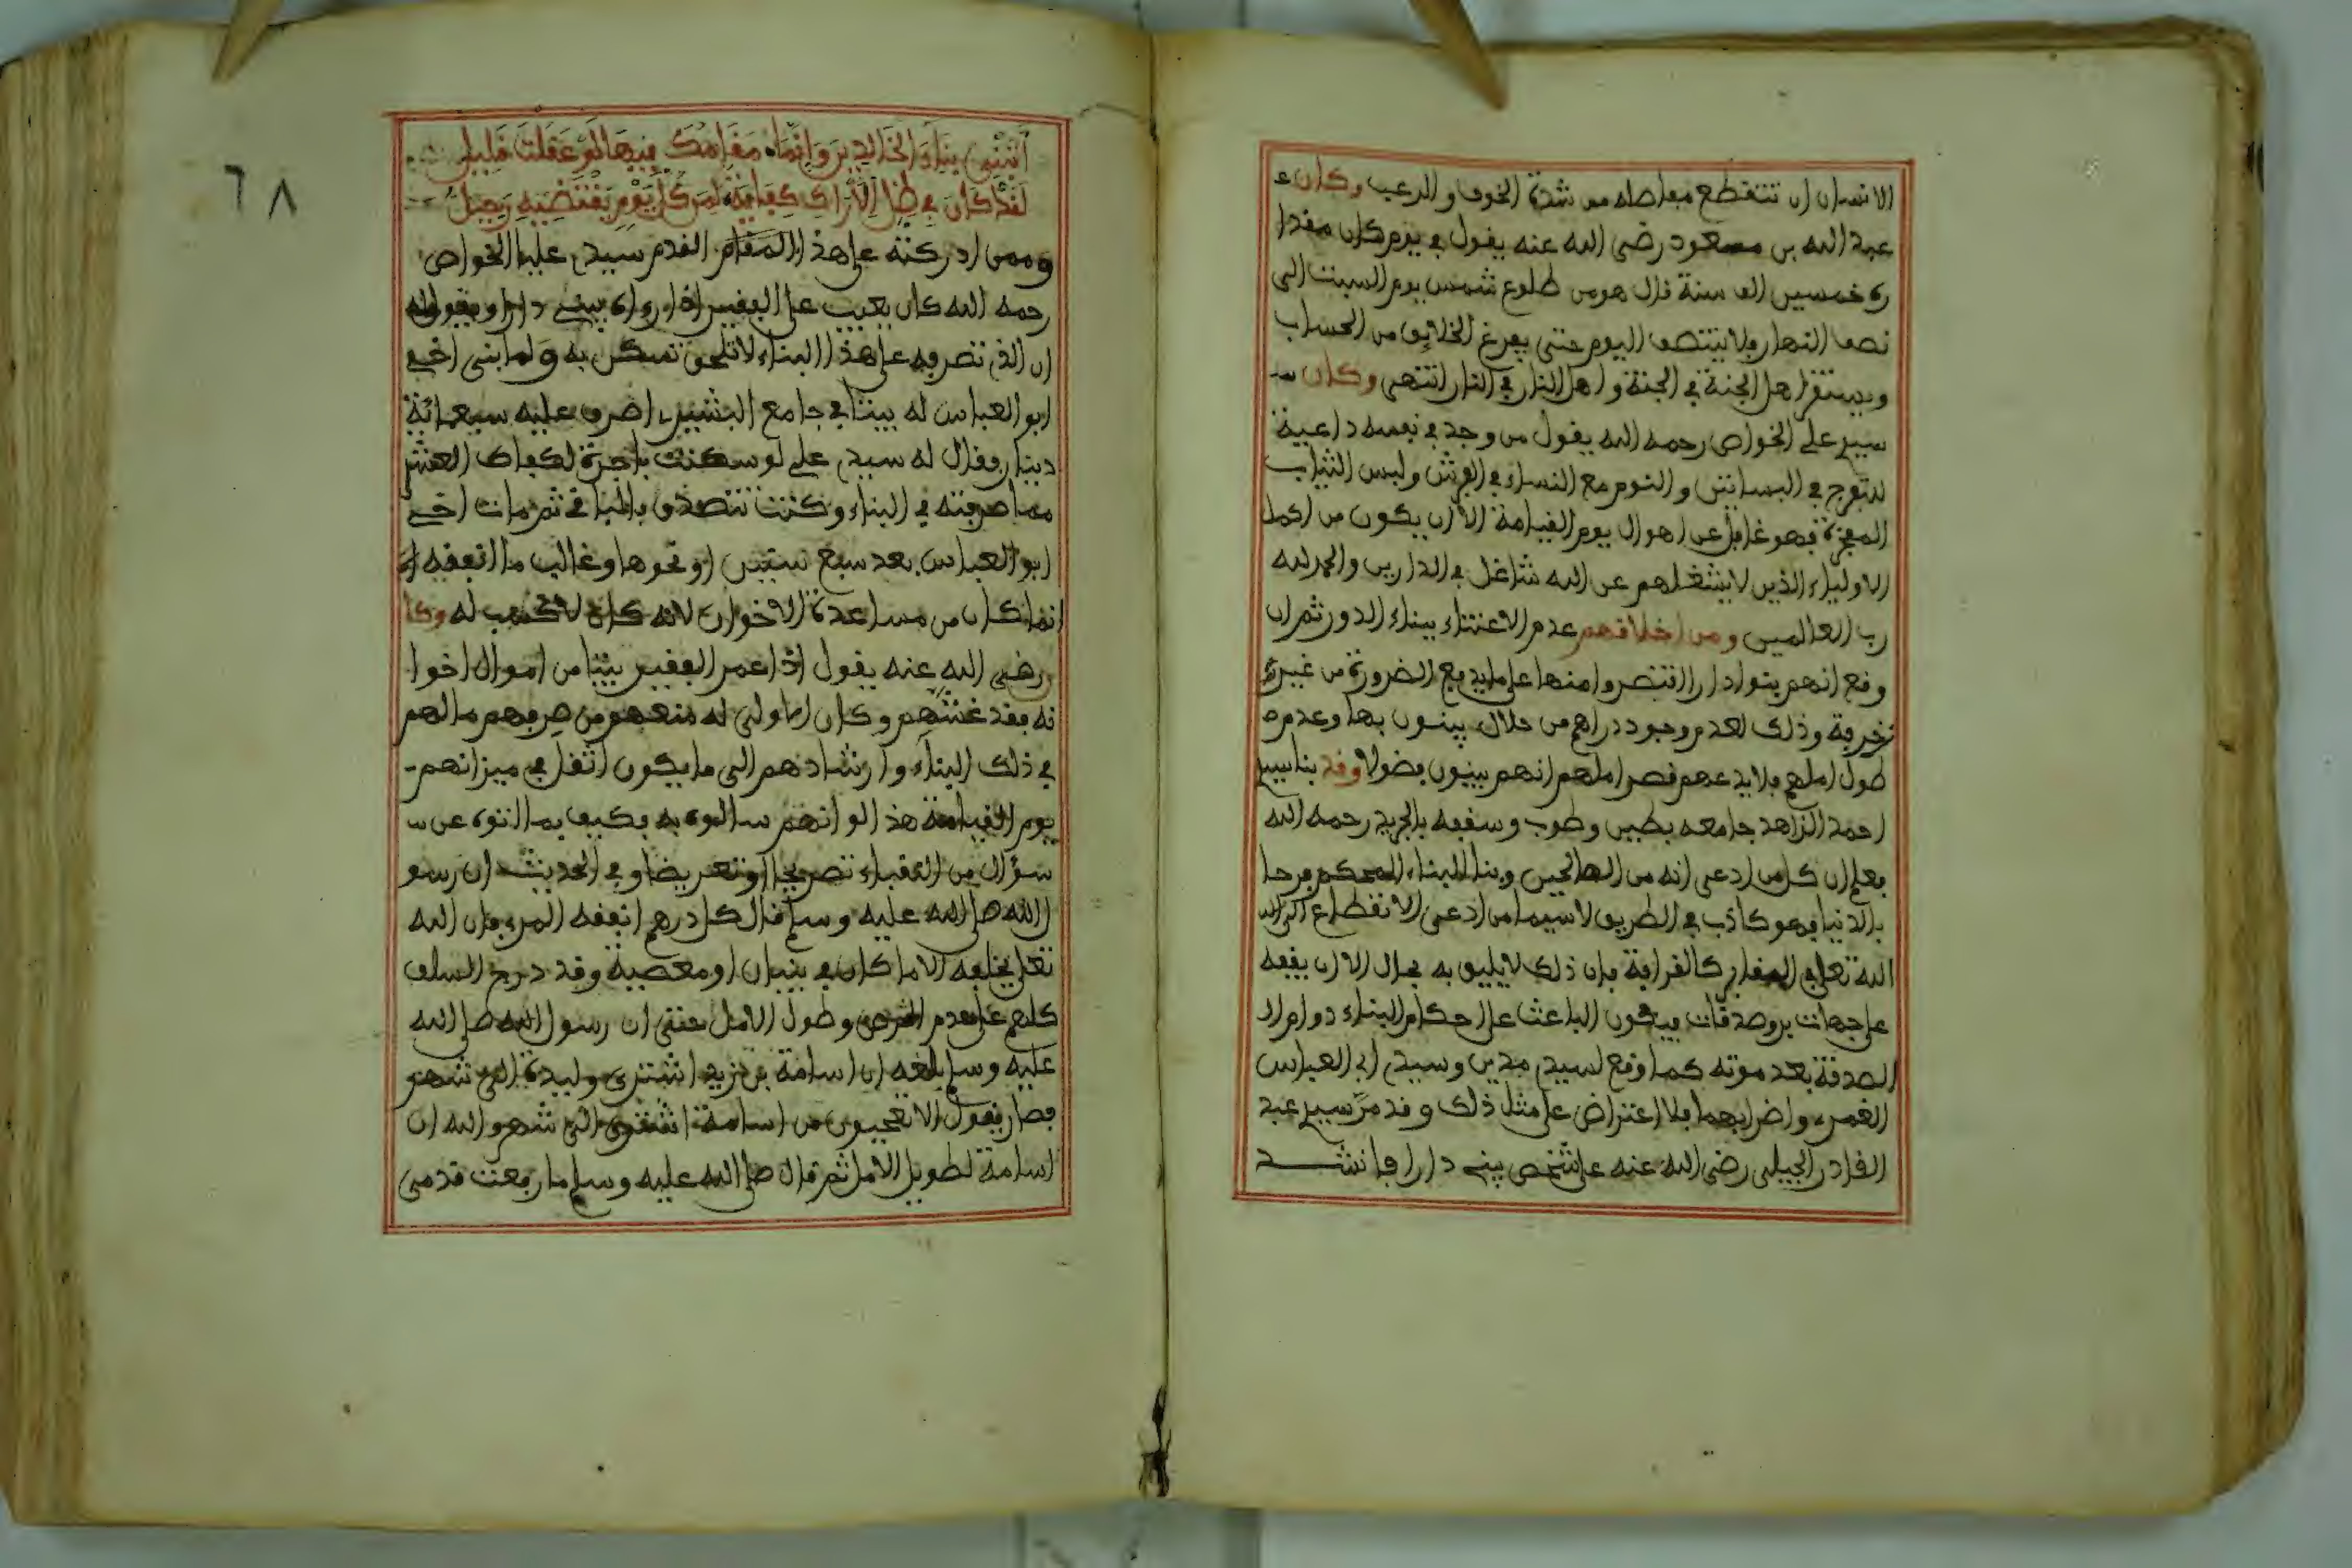 الانسان ان تتقطع مفاصله من شدة الخوف والرعب وكان ع
عبد الله بن مسعود رضي الله عنه يقول في يوم كان مقدا
ره خمسين الف سنة قال هو من طلوع شمس يوم السبت الى
نصف النهار ولا ينتصف اليوم حتى يفرغ الخلائق من الحساب
ويستقر اهل الجنة في الجنة واهل النار في النار انتهى وكان س
سيد علي الخواص رحمه الله يقول من وجد في نفسه داعية
للتفرج في البساتين والنوم مع النساء في الفرش ولبس الثياب
المفخرة فهو غافل عن اهوال يوم القيامة الا ان يكون من اكمل
الاولياء الذين لا يشغلهم عن الله شاغل في الدارين والحمد لله
رب العالمين ومن اخلاقهم عدم الاعتناء ببناء الدور ثم ان
وقع انهم بنوا دارا اقتصروا منها على ما يدفع الضرورة من غير
زخرفة وذلك لعدم وجود دراهم من حلال يبنون بها وعدم
طول املهم فلا يدعهم قصر املهم انهم يبنون فضولا وقد بنا سيد
احمد الزاهد جامعه بطين وطوب وسقفه بالجريد رحمه الله
فعلم ان كل من ادعى انه من الصالحين وبنا البناء المحكم فرحا
بالدنيا فهو كاذب في الطريق لا سيما من ادعى الانقطاع الى
الله تعالى في المقابر كالقرافة فان ذلك لا يليق به بحال الا ان يقفه
على جهات بر وصدقات فيكون الباعث على احكام البناء دوام ال
الصدقة بعد موته كما وقع لسيد مدين وسيد ابي العباس
الغمري واضرابهما فلا اعتراض على مثل ذلك وقد مر سيد عبد
القادر الجيلي رضي الله عنه على شخص يبني دارا فانشد
٦٨
اتبني بناء الخالدين وانما مقامك فيها لو عقلت قليل
لقد كان في ظل الاراك كفاية لمن كل يوم يقتضيه رحيل
وممن ادركته على هذا المقام القدم سيد علي الخواص
رحمه الله كان يعيب على الفقير اذا رواه يبني دارا ويقول له
ان الذي تصرفه على هذا البناء لا تلحق تسكن به ولما بنى اخي
ابو العباس له بيتا في جامع البشيري اصرف عليه سبعمائة
دينار فقال له سيد علي لو سكنت باجرة لكفاك العشر
مما صرفته في البناء وكنت تتصدق بالباقي ثم مات اخي
ابو العباس بعد سبع سنين او نحوها وغالب ما انفقه
انما كان من مساعدة الاخوان لانه كان لا كسب له وكا
رضي الله عنه يقول اذا عمر الفقير بيتا من اموال اخوا
نه فقد غشهم وكان الاولى له منعهم من صرفهم مالهم
في ذلك البناء وارشادهم الى ما يكون اثقل في ميزانهم
يوم القيامة هذا لو انهم سالوه به فكيف بما اتوه عن س
سؤال من الفقراء تصريحا او تعريضا وفي الحديث ان رسو
ل الله صلى الله عليه وسلم قال كل درهم انفقه المرء فان الله
تعلى يخلفه الا ما كان في بنيان او معصية وقد درج السلف
كلهم على عدم الحرص وطول الامل حتى ان رسول الله صلى الله
عليه وسلم بلغه ان اسامة بن زيد اشترى وليدة الى شهر
فصار يقول الا تعجبون من اسامة اشترى الى شهر والله ان
اسامة لطويل الامل ثم قال صلى الله عليه وسلم ما رفعت قدمي